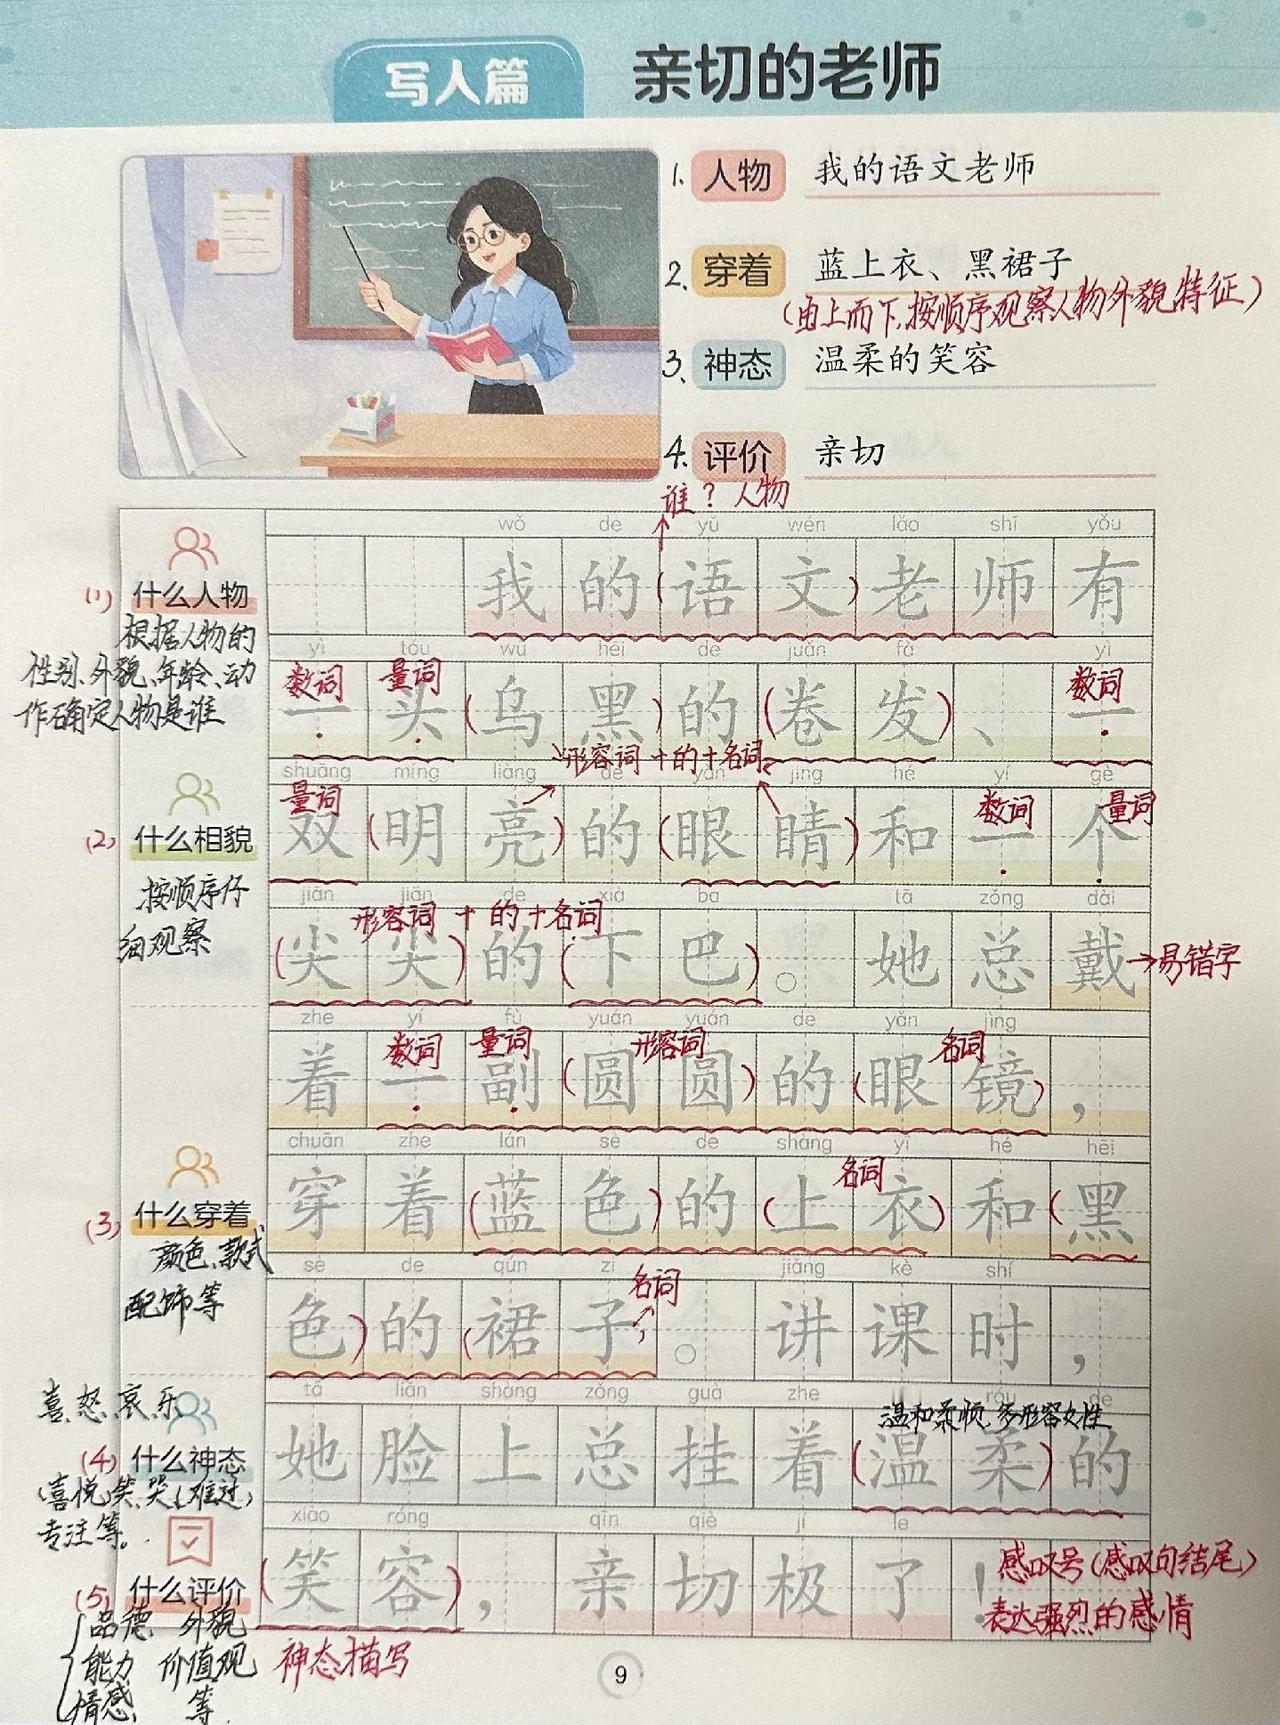 写人篇 亲切的老师
1. 人物 我的语文老师
2. 穿着 蓝上衣、黑裙子
(由上而下,按顺序观察人物外貌特征)
3、神态 温柔的笑容
4. 评价 亲切
谁？人物
wǒ de yǔ wén lǎo shī yǒu
(1) 什么人物 我的(语文)老师有
根据人物的
性别、外貌、年龄、动
作确定人物是谁
yì tóu wū hēi de juǎn fà yì
数词 量词 数词
一头(乌黑)的(卷发)、一
形容词+的+名词
shuāng míng liàng de yǎn jing hé yí gè
量词 数词 量词
(2) 什么相貌 双(明亮)的(眼睛)和一个
按顺序仔
细观察
jiān jiān de xià ba tā zǒng dài
形容词+的+名词
(尖尖)的(下巴)。她总戴→易错字
zhe yí fù yuán yuán de yǎn jìng
数词 量词 形容词 名词
着一副(圆圆)的(眼镜),
chuān zhe lán sè de shàng yī hé hēi
名词
(3) 什么穿着 穿着(蓝色)的(上衣)和(黑
颜色、款式、
配饰等
sè de qún zi jiǎng kè shí
名词
色)的(裙子)。讲课时,
tā liǎn shàng zǒng guà zhe róu de
喜、怒、哀、乐
温和柔顺,多形容女性
(4) 什么神态 她脸上总挂着(温柔)的
(喜悦、笑、哭(难过)
专注等。
xiào róng qīn qiè jí le
(5) 什么评价 (笑容),亲切极了!
感叹号(感叹句结尾)
表达强烈的感情
品德 外貌
能力 价值观
情感 等
神态描写
9